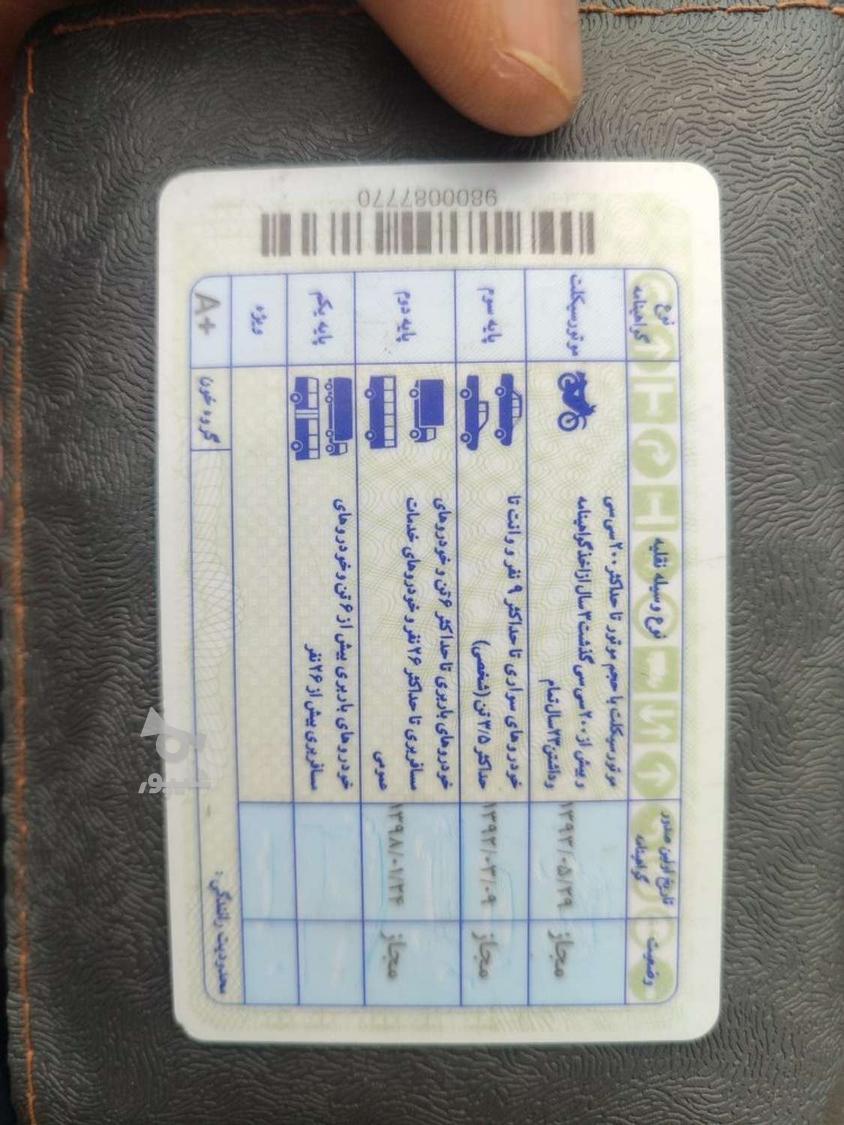 9800087770
نوع گواهینامه
نوع وسیله نقلیه
تاریخ اولین صدور گواهینامه
وضعیت
موتورسیکلت
موتورسیکلت با حجم موتور تا حداکثر ۲۰۰ سی سی
و بیش از ۲۰۰ سی سی گذشت ۳ سال از اخذ گواهینامه
و داشتن ۲۳ سال تمام
۱۳۹۳/۰۵/۲۹
مجاز
پایه سوم
خودروهای سواری تا حداکثر ۹ نفر و وانت تا
حداکثر ۳/۵ تن (شخصی)
۱۳۹۲/۰۳/۰۹
مجاز
پایه دوم
خودروهای باربری تا حداکثر ۶ تن و خودروهای
مسافربری تا حداکثر ۲۶ نفر و خودروهای خدمات
عمومی
۱۳۹۸/۰۱/۲۴
مجاز
پایه یکم
خودروهای باربری بیش از ۶ تن و خودروهای
مسافربری بیش از ۲۶ نفر
ویژه
A+
گروه خون
محدودیت رانندگی :